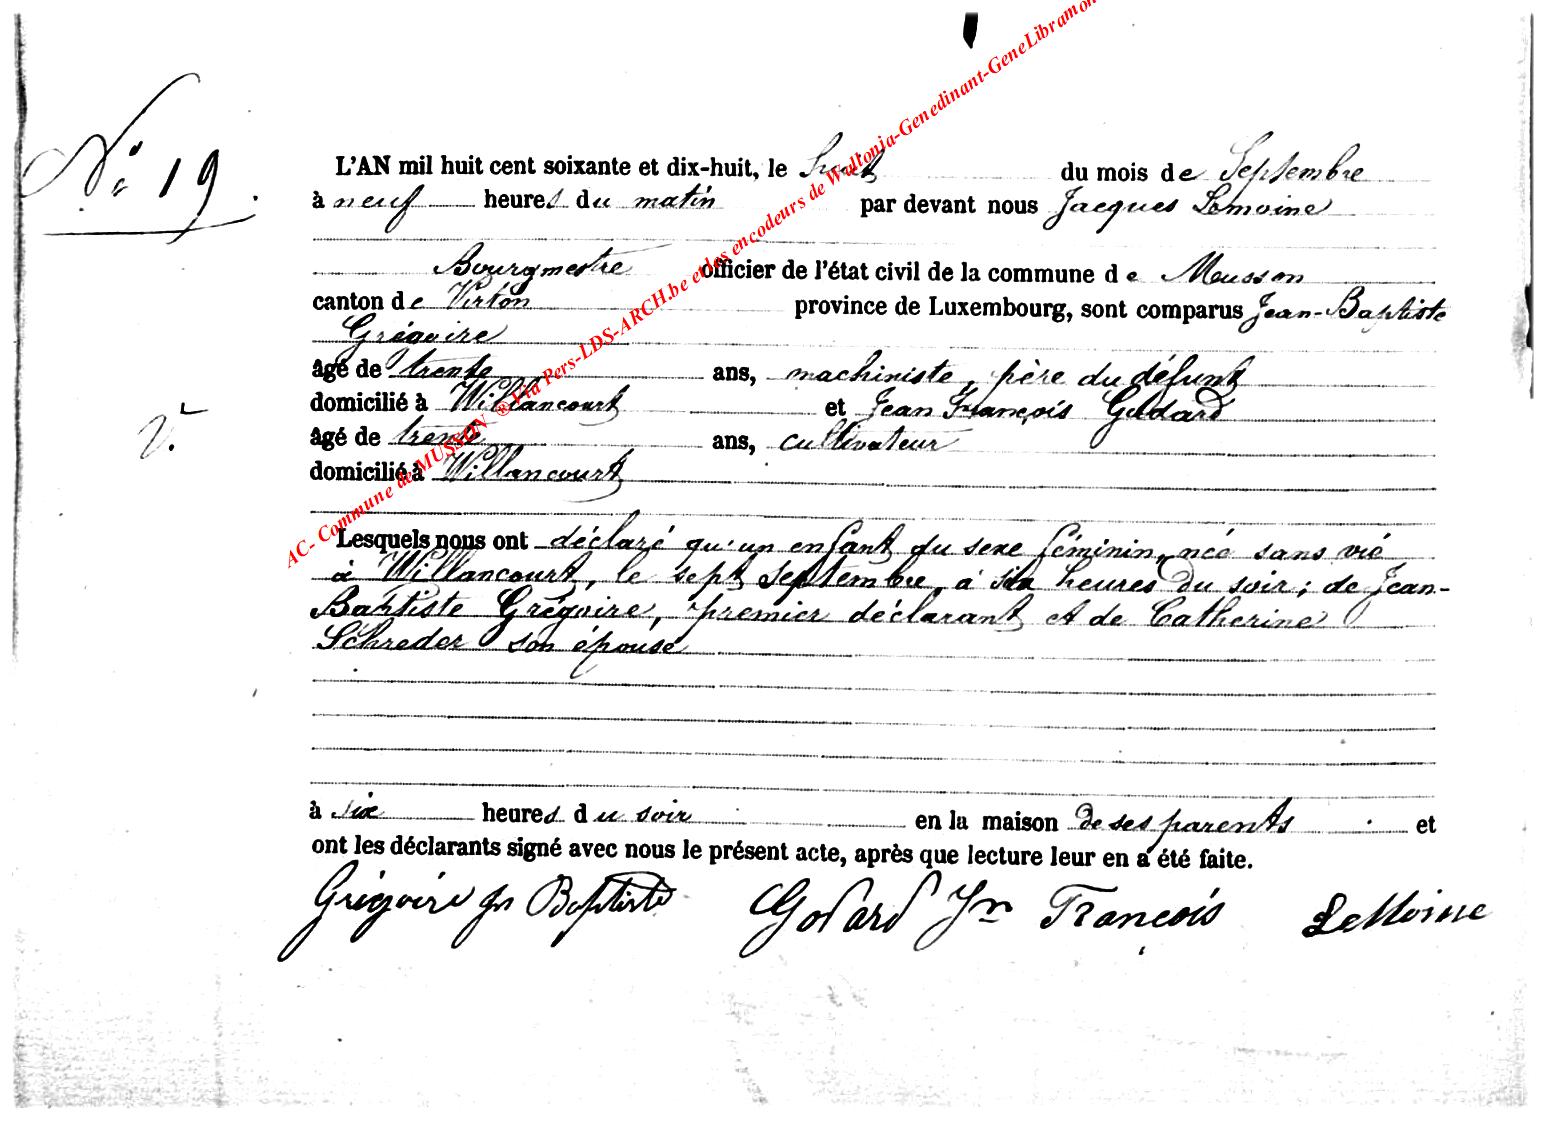 N° 19
L'AN mil huit cent soixante et dix-huit, le huit du mois de Septembre
à neuf heures du matin par devant nous Jacques Lemoine
Bourgmestre officier de l'état civil de la commune de Musson
canton de Virton province de Luxembourg, sont comparus Jean-Baptiste
Grégoire
âgé de trente ans, machiniste, père du défunt
domicilié à Willancourt et Jean François Godard
V.
âgé de trente ans, cultivateur
domicilié à Willancourt
Lesquels nous ont déclaré qu'un enfant du sexe féminin, née sans vie
à Willancourt, le sept septembre, à six heures du soir; de Jean-
Baptiste Grégoire, premier déclarant et de Catherine
Schreder son épouse
à six heures du soir en la maison de ses parents et
ont les déclarants signé avec nous le présent acte, après que lecture leur en a été faite.
Grégoire Jn Baptiste Godard Jn François LeMoine
AC- Commune de MUSSON ® Via Pers-LDS-ARCH.be et les encodeurs de Wallonia-Genedinant-GeneLibramon